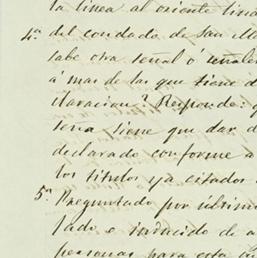 la linea al oriente lind
4ª del condado de San Ma
sabe otra señal ó señale
á mas de las que tiene d
claracion? Responde: q
sena tiene que dar d
declarado conforme a
los titulos ya citados
5ª Preguntado por ultim
jado e inducido de a
personas para esta